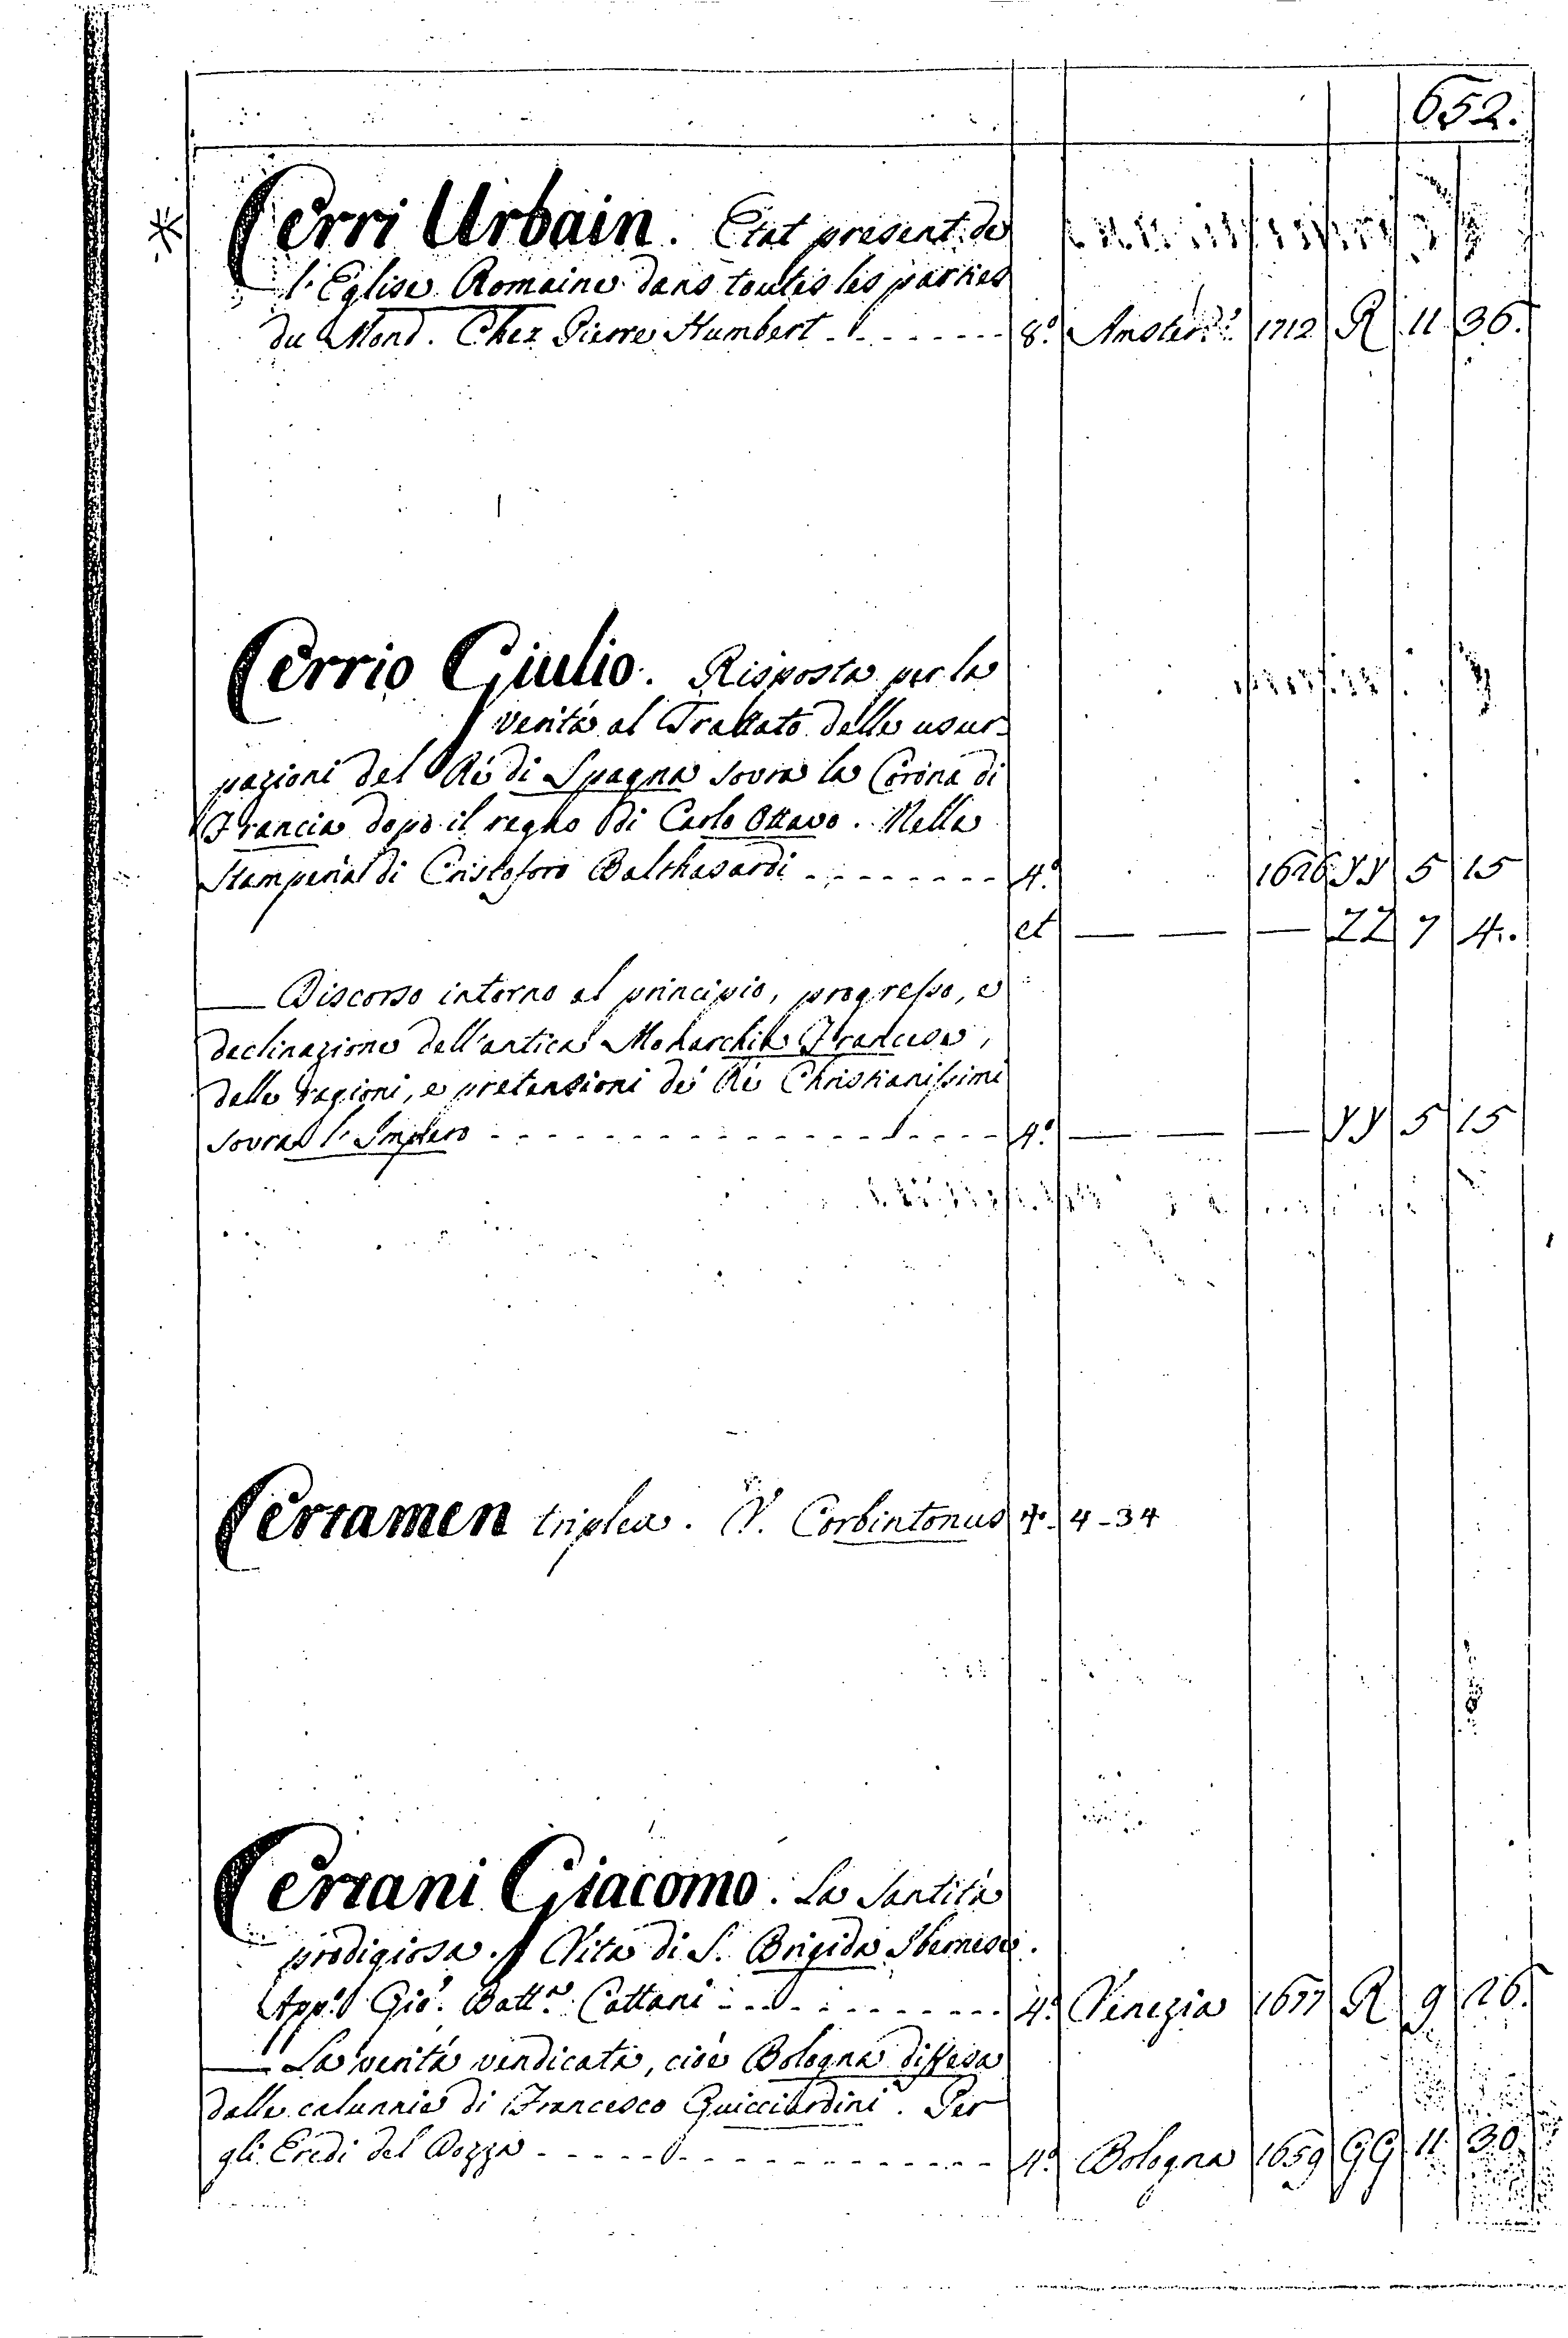 652.
* Cerri Urbain. Etat present de
l'Eglise Romaine dans toutes les parties
du Mond. Chez Pierre Humbert - - - - - - - 8.º Amster.ᵐ 1712 R 11 36.
Cerrio Giulio. Risposta per la
verità al Trattato delle usur-
pazioni del Rè di Spagna sovra la Corona di
Francia dopo il regno di Carlo Ottavo. Nella
Stamperia di Cristoforo Balthasardi - - - - - - - - 4.º 1626 YY 5 15
et — — — ZZ 7 4.
— Discorso intorno al principio, progresso, e
declinazione dell'antica Monarchia Francese,
delle ragioni, e pretensioni de' Rè Christianissimi
sovra l'Impero - - - - - - - - - - - - - - - - 4.º — — — YY 5 15
Certamen triplex. V. Corbintonus 4-34
Certani Giacomo. La Santità
prodigiosa. Vita di S. Brigida Ibernese.
App.º Gio. Batt.ª Cattani - - - - - - - - - - 4.º Venezia 1677 R 9 26.
— La verità vendicata, cioè Bologna diffesa
dalle calunnie di Francesco Guicciardini. Per
gli Eredi del Dozza - - - - - - - - - - - - - - 4.º Bologna 1659 GG 11 30.